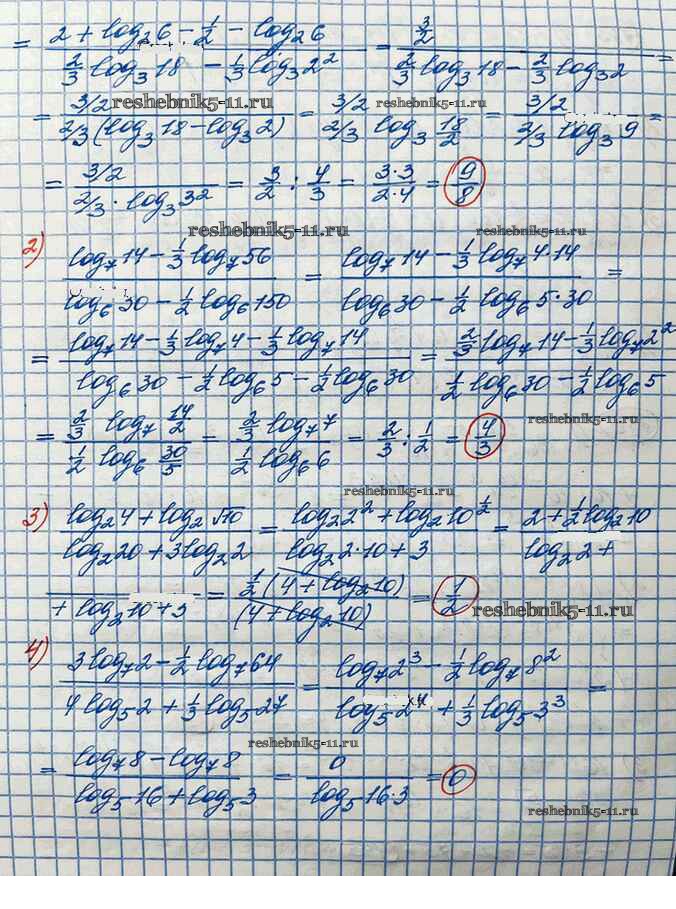 = (2 + log₂6 − 1/2 − log₂6)/(2/3 log₃18 − 1/3 log₃2²) = (3/2)/(2/3 log₃18 − 2/3 log₃2) =
= (3/2)/(2/3(log₃18 − log₃2)) = (3/2)/(2/3 log₃ 18/2) = (3/2)/(2/3 log₃9) =
reshebnik5-11.ru reshebnik5-11.ru
= (3/2)/(2/3 · log₃3²) = 3/2 : 4/3 = (3·3)/(2·4) = 9/8
reshebnik5-11.ru reshebnik5-11.ru
2) (log₇14 − 1/3 log₇56)/(log₆30 − 1/2 log₆150) = (log₇14 − 1/3 log₇4·14)/(log₆30 − 1/2 log₆5·30) =
= (log₇14 − 1/3 log₇4 − 1/3 log₇14)/(log₆30 − 1/2 log₆5 − 1/2 log₆30) = (2/3 log₇14 − 1/3 log₇2²)/(1/2 log₆30 − 1/2 log₆5)
reshebnik5-11.ru
= (2/3 log₇ 14/2)/(1/2 log₆ 30/5) = (2/3 log₇7)/(1/2 log₆6) = 2/3 : 1/2 = 4/3
reshebnik5-11.ru
3) (log₂4 + log₂√10)/(log₂20 + 3log₂2) = (log₂2² + log₂10^(1/2))/(log₂2·10 + 3) = (2 + 1/2 log₂10)/(log₂2 +
+ log₂10 + 3) = (1/2(4 + log₂10))/((4 + log₂10)) = 1/2
reshebnik5-11.ru
4) (3log₇2 − 1/2 log₇64)/(4log₅2 + 1/3 log₅27) = (log₇2³ − 1/2 log₇8²)/(log₅2⁴ + 1/3 log₅3³) =
reshebnik5-11.ru
= (log₇8 − log₇8)/(log₅16 + log₅3) = 0/(log₅16·3) = 0
reshebnik5-11.ru